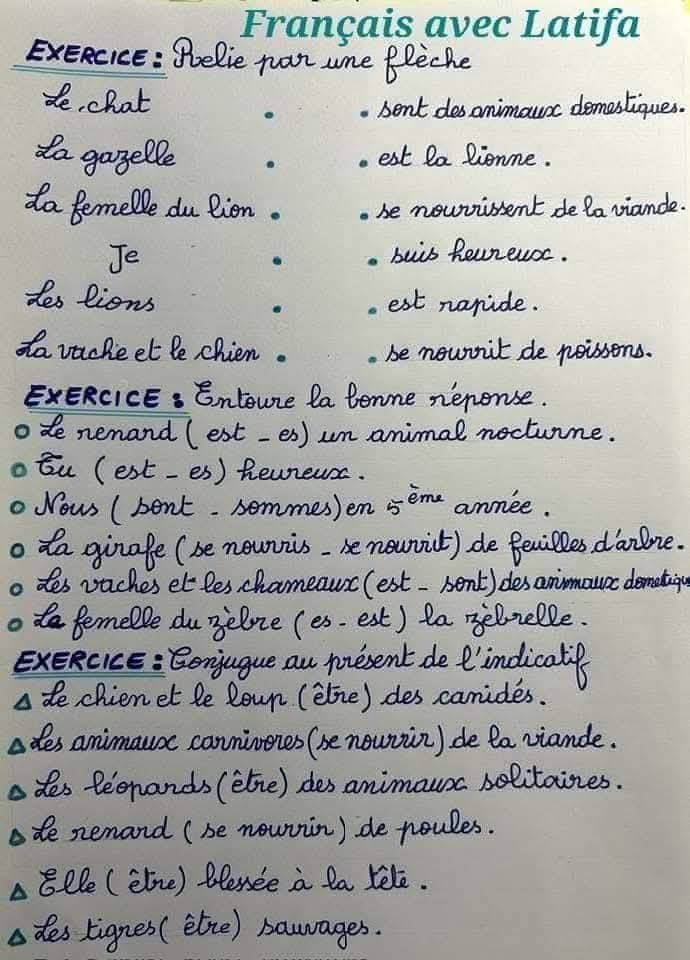 Français avec Latifa
EXERCICE : Relie par une flèche
Le chat . . sont des animaux domestiques.
La gazelle . . est la lionne.
La femelle du lion . . se nourrissent de la viande.
Je . . suis heureux.
Les lions . . est rapide.
La vache et le chien . . se nourrit de poissons.
EXERCICE : Entoure la bonne réponse.
Le renard ( est - es ) un animal nocturne.
Tu ( est - es ) heureux.
Nous ( sont - sommes ) en 5ème année.
La girafe ( se nourris - se nourrit ) de feuilles d'arbre.
Les vaches et les chameaux ( est - sont ) des animaux domestiqu
La femelle du zèbre ( es - est ) la zèbrelle.
EXERCICE : Conjugue au présent de l'indicatif
Le chien et le loup ( être ) des canidés.
Les animaux carnivores ( se nourrir ) de la viande.
Les léopards ( être ) des animaux solitaires.
Le renard ( se nourrir ) de poules.
Elle ( être ) blessée à la tête.
Les tigres ( être ) sauvages.